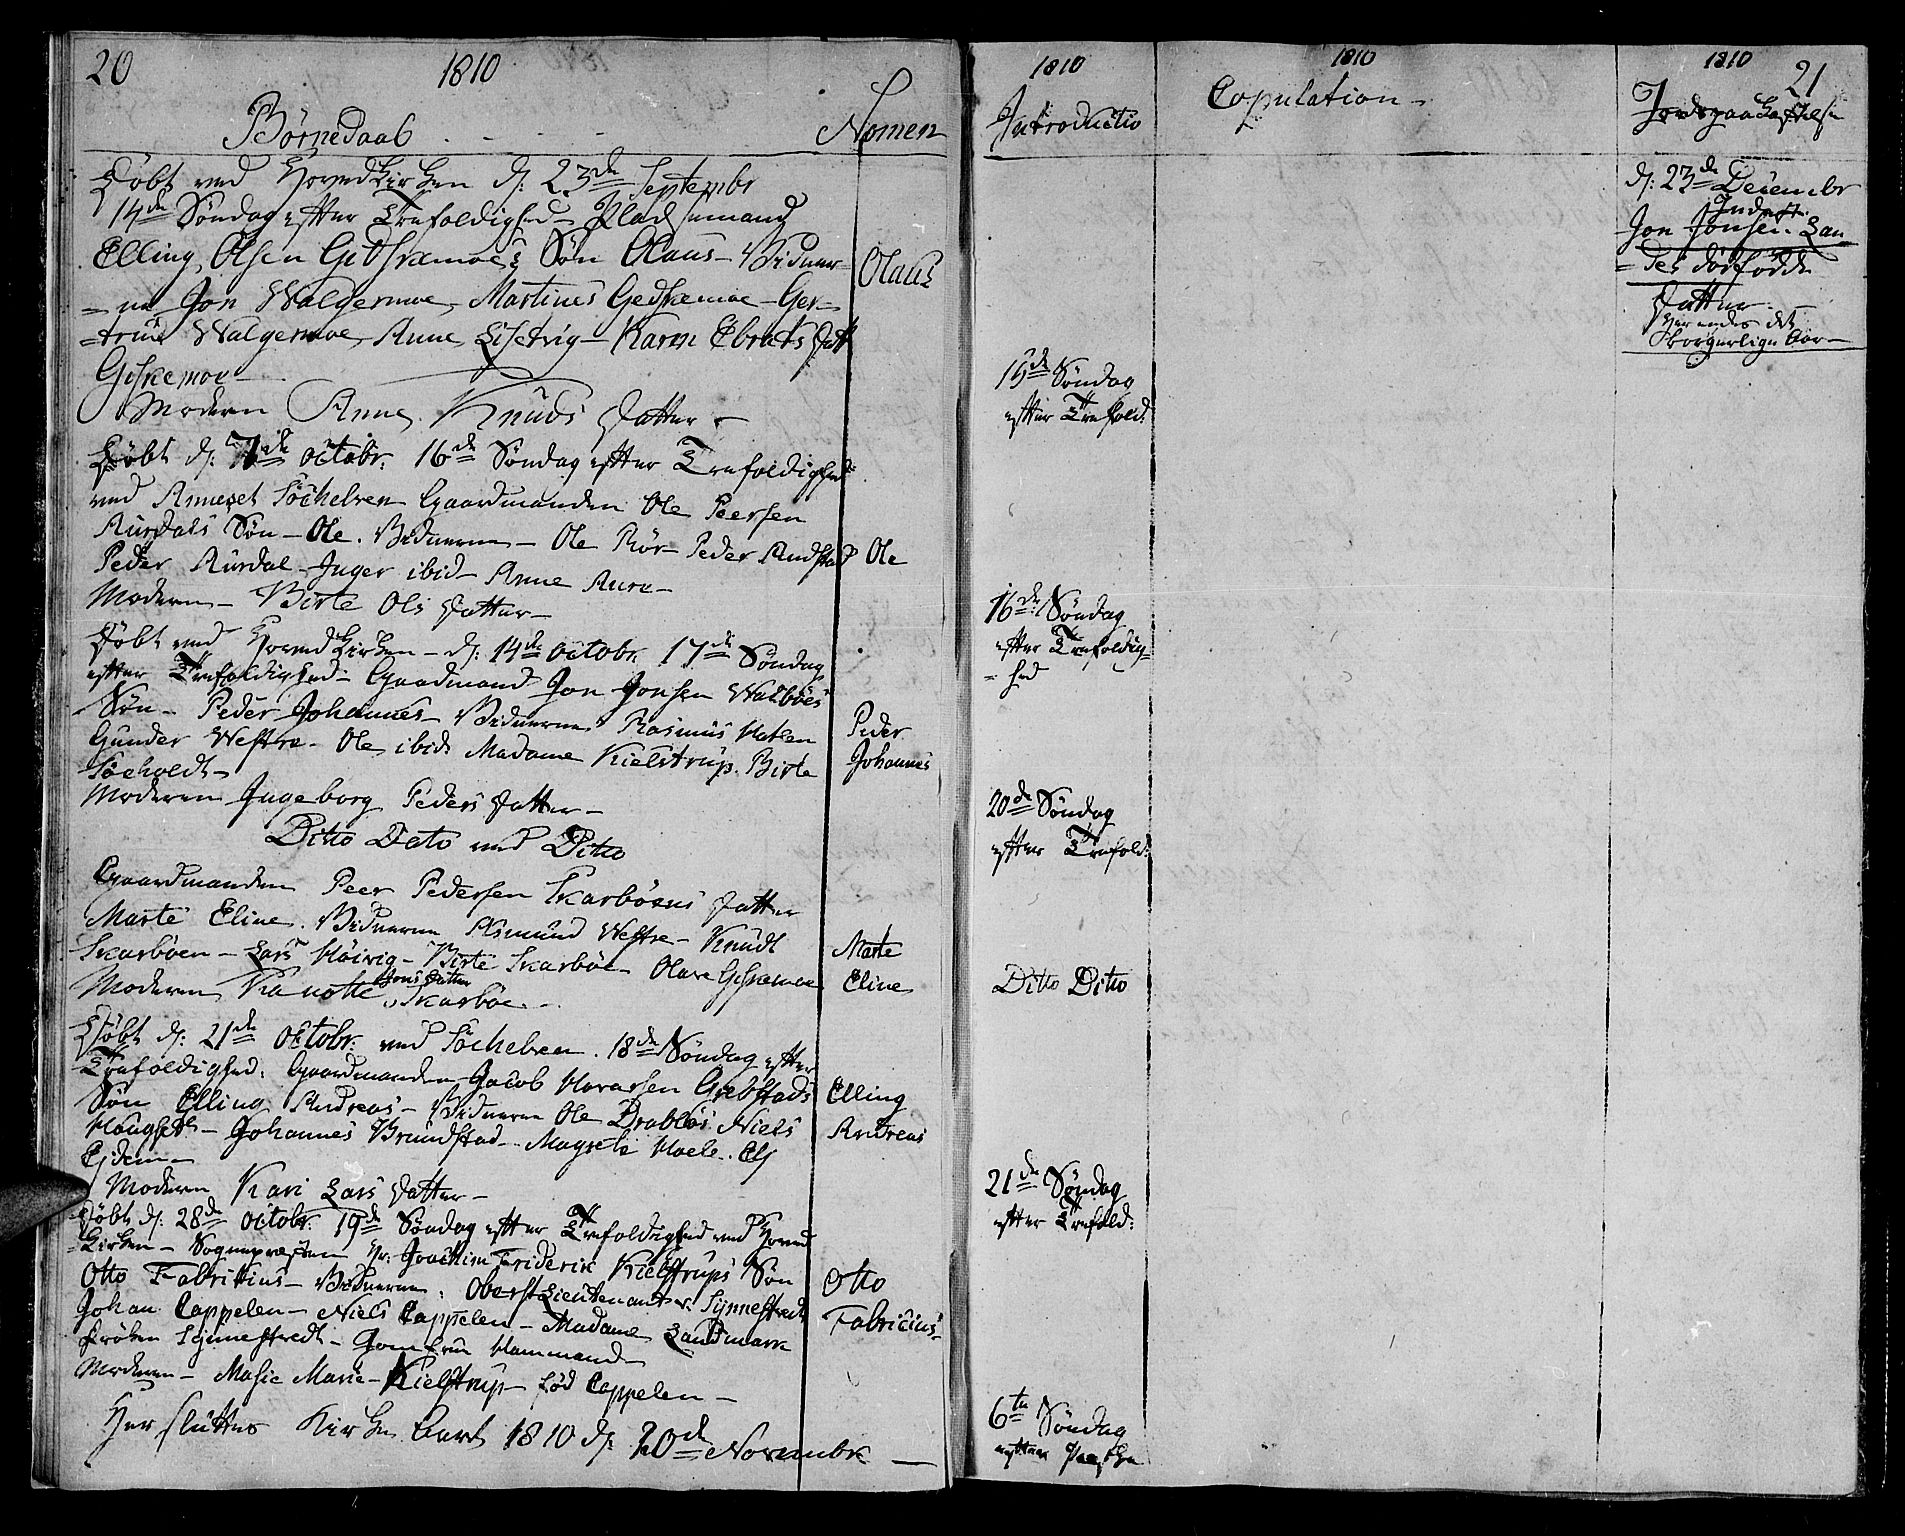 20
1810
Børnedaab
Nomen
Døbt ved Hovedkirken d: 23de Septembr
14de Søndag efter Trefoldighed Pladsemand
Elling Olsen Gidskemoes Søn Olaus Vidner-
Olaus
=ne Jon Walgermoe, Martines Gedskemoe - Ger-
=true Walgermoe, Anne Lisetvig - Karen Ebrats Datt
Giskemoe -
Moderen Anne Knuds Datter -
Døbt d: 7de octobr: 16de Søndag efter Trefoldighed
ved Annexet Söchelven Gaardmanden Ole Peersen
Aurdals Søn - Ole. Vidnerne - Ole Rör - Peder Andstad
Ole
Peder Aurdal - Inger ibid - Anne Aure -
Moderen - Birte Ols Datter -
Døbt ved Hovedkirken - d: 14de octobr: 17de Søndag
efter Trefoldighed - Gaadmand Jon Jonsen Walböes
Søn - Peder Johannes - Vidnerne Rasmus Hatlen
Peder
Gunder Westre - Ole ibid Madame Kielstrup. Birte
Johannes
Söeholdt -
Moderen Ingeborg Peders Datter -
Ditto Dato ved Ditto
Gaardmanden Peer Pedersen Skarböens Datter
Marte Eline. Vidnerne Asmund Westre - Knudt
Marte
Skarböen - Lars Höivig - Birte Skarböe - Olave Giskemoe
Eline
Jons Datter
Moderen Skarböe -
Døbt d: 21de Octobr: ved Söchelven. 18de Søndag efter
Trefoldighed. Gaardmanden Jacob Havarsen Grebstads
Elling
Søn Elling Andreas - Vidnerne Ole Drablös. Niels
Andreas
Haugseth - Johannes Brundstad - Magrete Hoele. Els
Ejdem -
Moderen Kari Lars Datter -
Døbt d: 28de octobr. 19de Søndag efter Trefoldighed ved Hoved
=Kirken - Sognepræsten Hr: Joachim Friderik Kielstrups Søn
Otto
Otto Fabritius - Vidnerne. Oberstlieutenant v: Synnestvedt
Johan Cappelen - Niels Cappelen - Madame Landmark
Fabricius
Frøken Synnestvedt - Jomfrue Hammond
Moderen - Masie Marie - Kielstrup - fød Cappelen -
Her sluttes Kirke Aaret 1810 d: 20de Novembr -
1810
Introductio
15de Søndag
efter Trefold:
16de Søndag
efter Trefoldig=
=hed
20de Søndag
efter Trefold:
Ditto Ditto
21de Søndag
efter Trefold:
6te Søndag
efter Paaske
1810
Copulation -
1810
21
Jordspaakastelse
d: 23de Decembr
Indest:
Jon Jonsen Lan
=des dødfødde
Datter. -
Her endes det
borgerlige Aar -